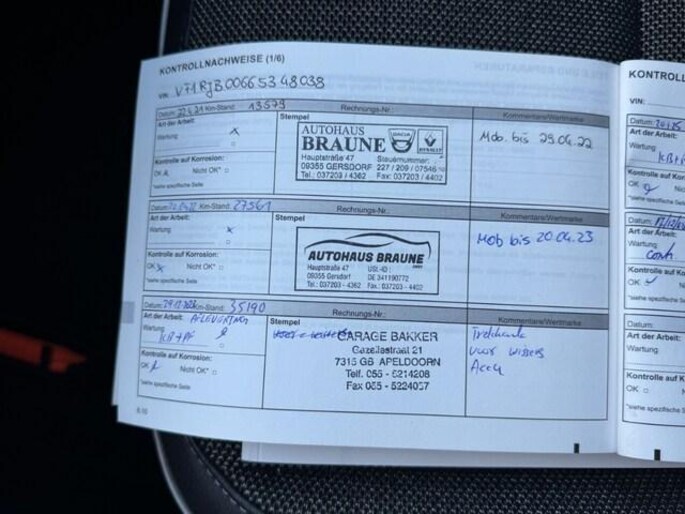 KONTROLLNACHWEISE (1/6)
VIN:
Datum: Km-Stand: 13579
Rechnungs-Nr.:
Kommentare/Wertmarke
Art der Arbeit:
Wartung x
Kontrolle auf Korrosion:
OK Nicht OK*
*siehe spezifische Seite
Stempel
AUTOHAUS
BRAUNE
DACIA
RENAULT
Hauptstraße 47 Steuernummer:
09355 GERSDORF 227 / 209 / 07546
Tel.: 037203 / 4362 Fax: 037203 / 4402
Mob. bis 29.04.22
Datum: Km-Stand: 27561
Rechnungs-Nr.:
Kommentare/Wertmarke
Art der Arbeit:
Wartung x
Kontrolle auf Korrosion:
OK x Nicht OK*
*siehe spezifische Seite
Stempel
AUTOHAUS BRAUNE
Hauptstraße 47 USt.-ID:
09355 Gersdorf DE 341190772
Tel.: 037203 - 4362 Fax.: 037203 - 4402
Mob bis 20.04.23
Datum: Km-Stand: 35190
Rechnungs-Nr.:
Kommentare/Wertmarke
Art der Arbeit: AFLEVERING
Wartung
Kontrolle auf Korrosion:
OK Nicht OK*
*siehe spezifische Seite
Stempel
GARAGE BAKKER
Gazellestraat 21
7315 GS APELDOORN
Telf. 055 - 5214208
Fax 055 - 5224057
Trekhaak
voor wissers
Accu
KONTROLL
VIN:
Datum:
Art der Arbeit:
Wartung
Kontrolle auf K
OK
*siehe spezifische
Art der Arbeit:
Wartung
Kontrolle auf K
OK
*siehe spezifische
Datum:
Art der Arbeit:
Wartung
Kontrolle auf K
OK
*siehe spezifische